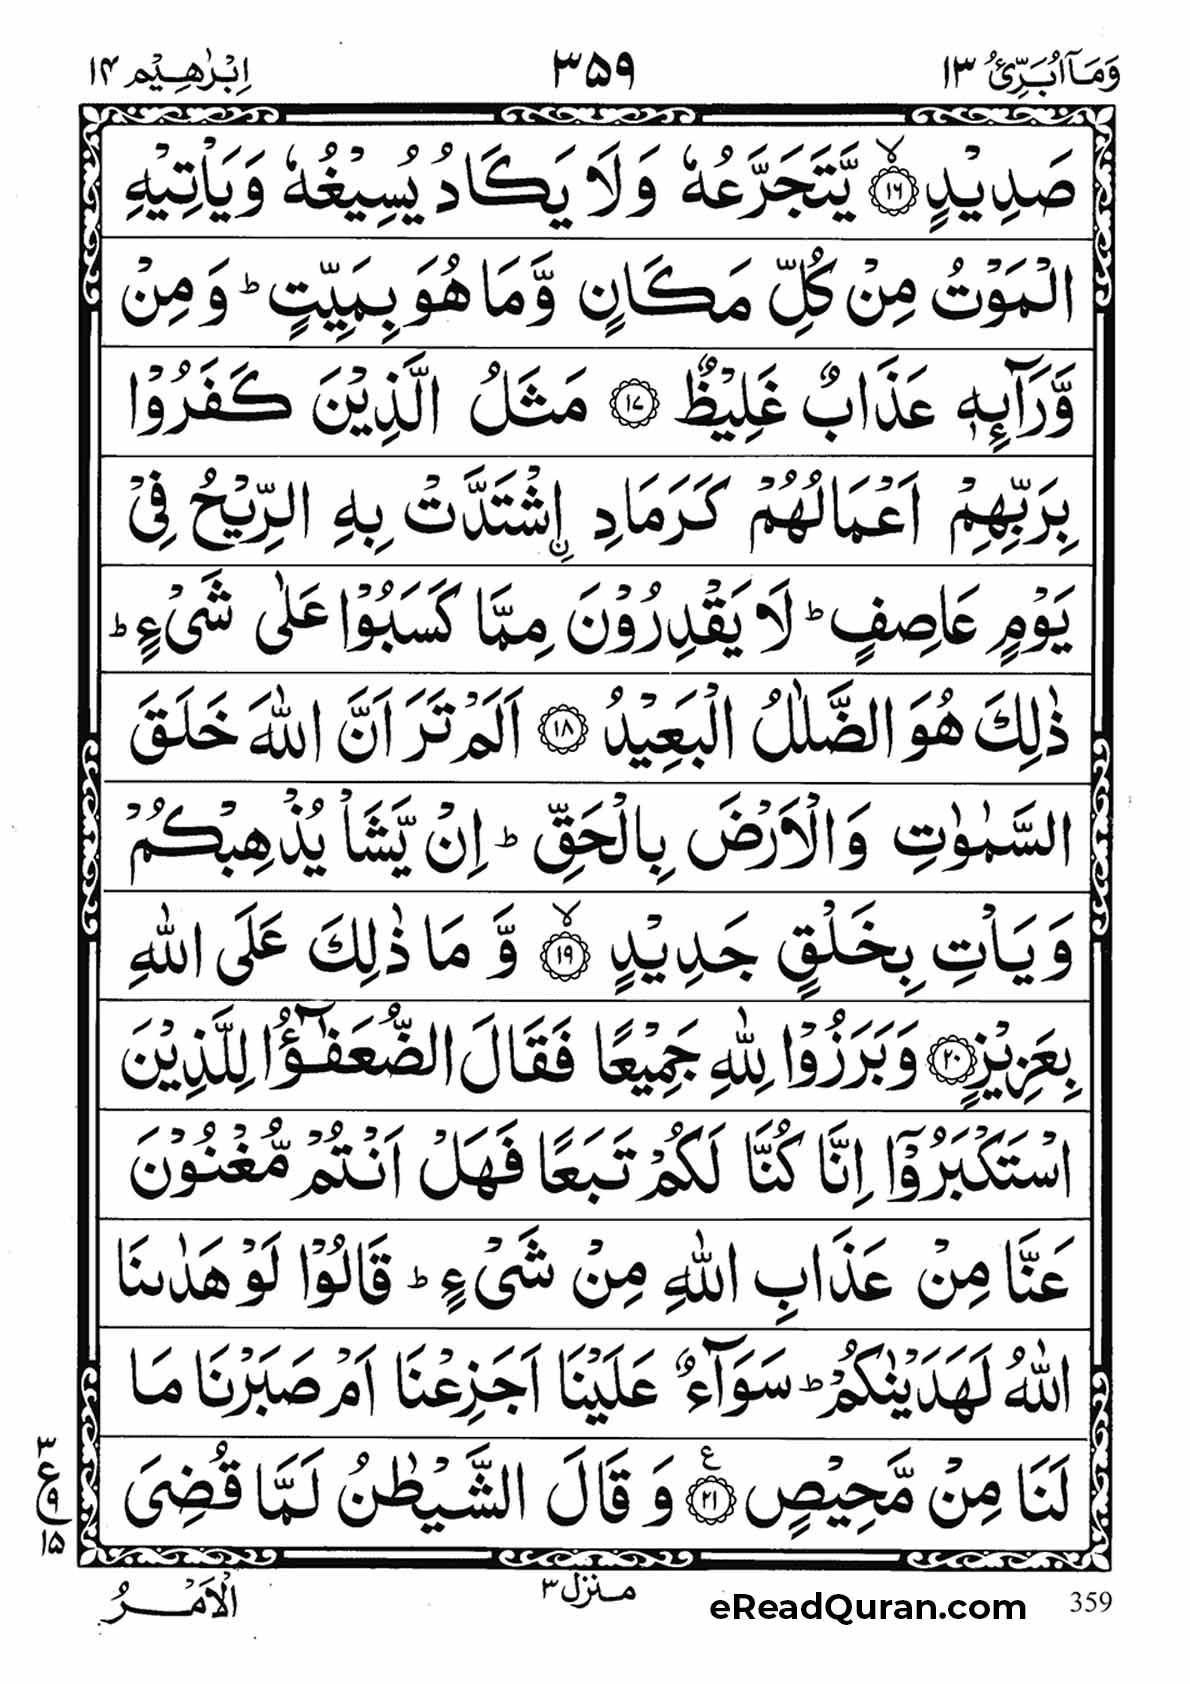 وَمَآ اُبَرِّئُ ۱۳ ۳۵۹ اِبْرٰهِيْم ۱۴
صَدِيْدٍ ۙ‏﴿۱۶﴾ يَّتَجَرَّعُهٗ وَلَا يَكَادُ يُسِيْغُهٗ وَيَاْتِيْهِ
الْمَوْتُ مِنْ كُلِّ مَكَانٍ وَّمَا هُوَ بِمَيِّتٍ ؕ وَمِنْ
وَّرَآئِهٖ عَذَابٌ غَلِيْظٌ ﴿۱۷﴾ مَثَلُ الَّذِيْنَ كَفَرُوْا
بِرَبِّهِمْ اَعْمَالُهُمْ كَرَمَادِ ۨاشْتَدَّتْ بِهِ الرِّيْحُ فِىْ
يَوْمٍ عَاصِفٍ ؕ لَا يَقْدِرُوْنَ مِمَّا كَسَبُوْا عَلٰى شَىْءٍ ؕ
ذٰلِكَ هُوَ الضَّلٰلُ الْبَعِيْدُ ﴿۱۸﴾ اَلَمْ تَرَ اَنَّ اللّٰهَ خَلَقَ
السَّمٰوٰتِ وَالْاَرْضَ بِالْحَقِّ ؕ اِنْ يَّشَاْ يُذْهِبْكُمْ
وَيَاْتِ بِخَلْقٍ جَدِيْدٍ ۙ﴿۱۹﴾ وَّمَا ذٰلِكَ عَلَى اللّٰهِ
بِعَزِيْزٍ ﴿۲۰﴾ وَبَرَزُوْا لِلّٰهِ جَمِيْعًا فَقَالَ الضُّعَفٰٓؤُا لِلَّذِيْنَ
اسْتَكْبَرُوْۤا اِنَّا كُنَّا لَكُمْ تَبَعًا فَهَلْ اَنْتُمْ مُّغْنُوْنَ
عَنَّا مِنْ عَذَابِ اللّٰهِ مِنْ شَىْءٍ ؕ قَالُوْا لَوْ هَدٰٮنَا
اللّٰهُ لَهَدَيْنٰكُمْ ؕ سَوَآءٌ عَلَيْنَاۤ اَجَزِعْنَاۤ اَمْ صَبَرْنَا مَا
لَنَا مِنْ مَّحِيْصٍ ﴿۲۱﴾ ع وَقَالَ الشَّيْطٰنُ لَمَّا قُضِىَ
۳
ع
۹
۱۵
الْاَمْرُ منزل ۳
eReadQuran.com 359